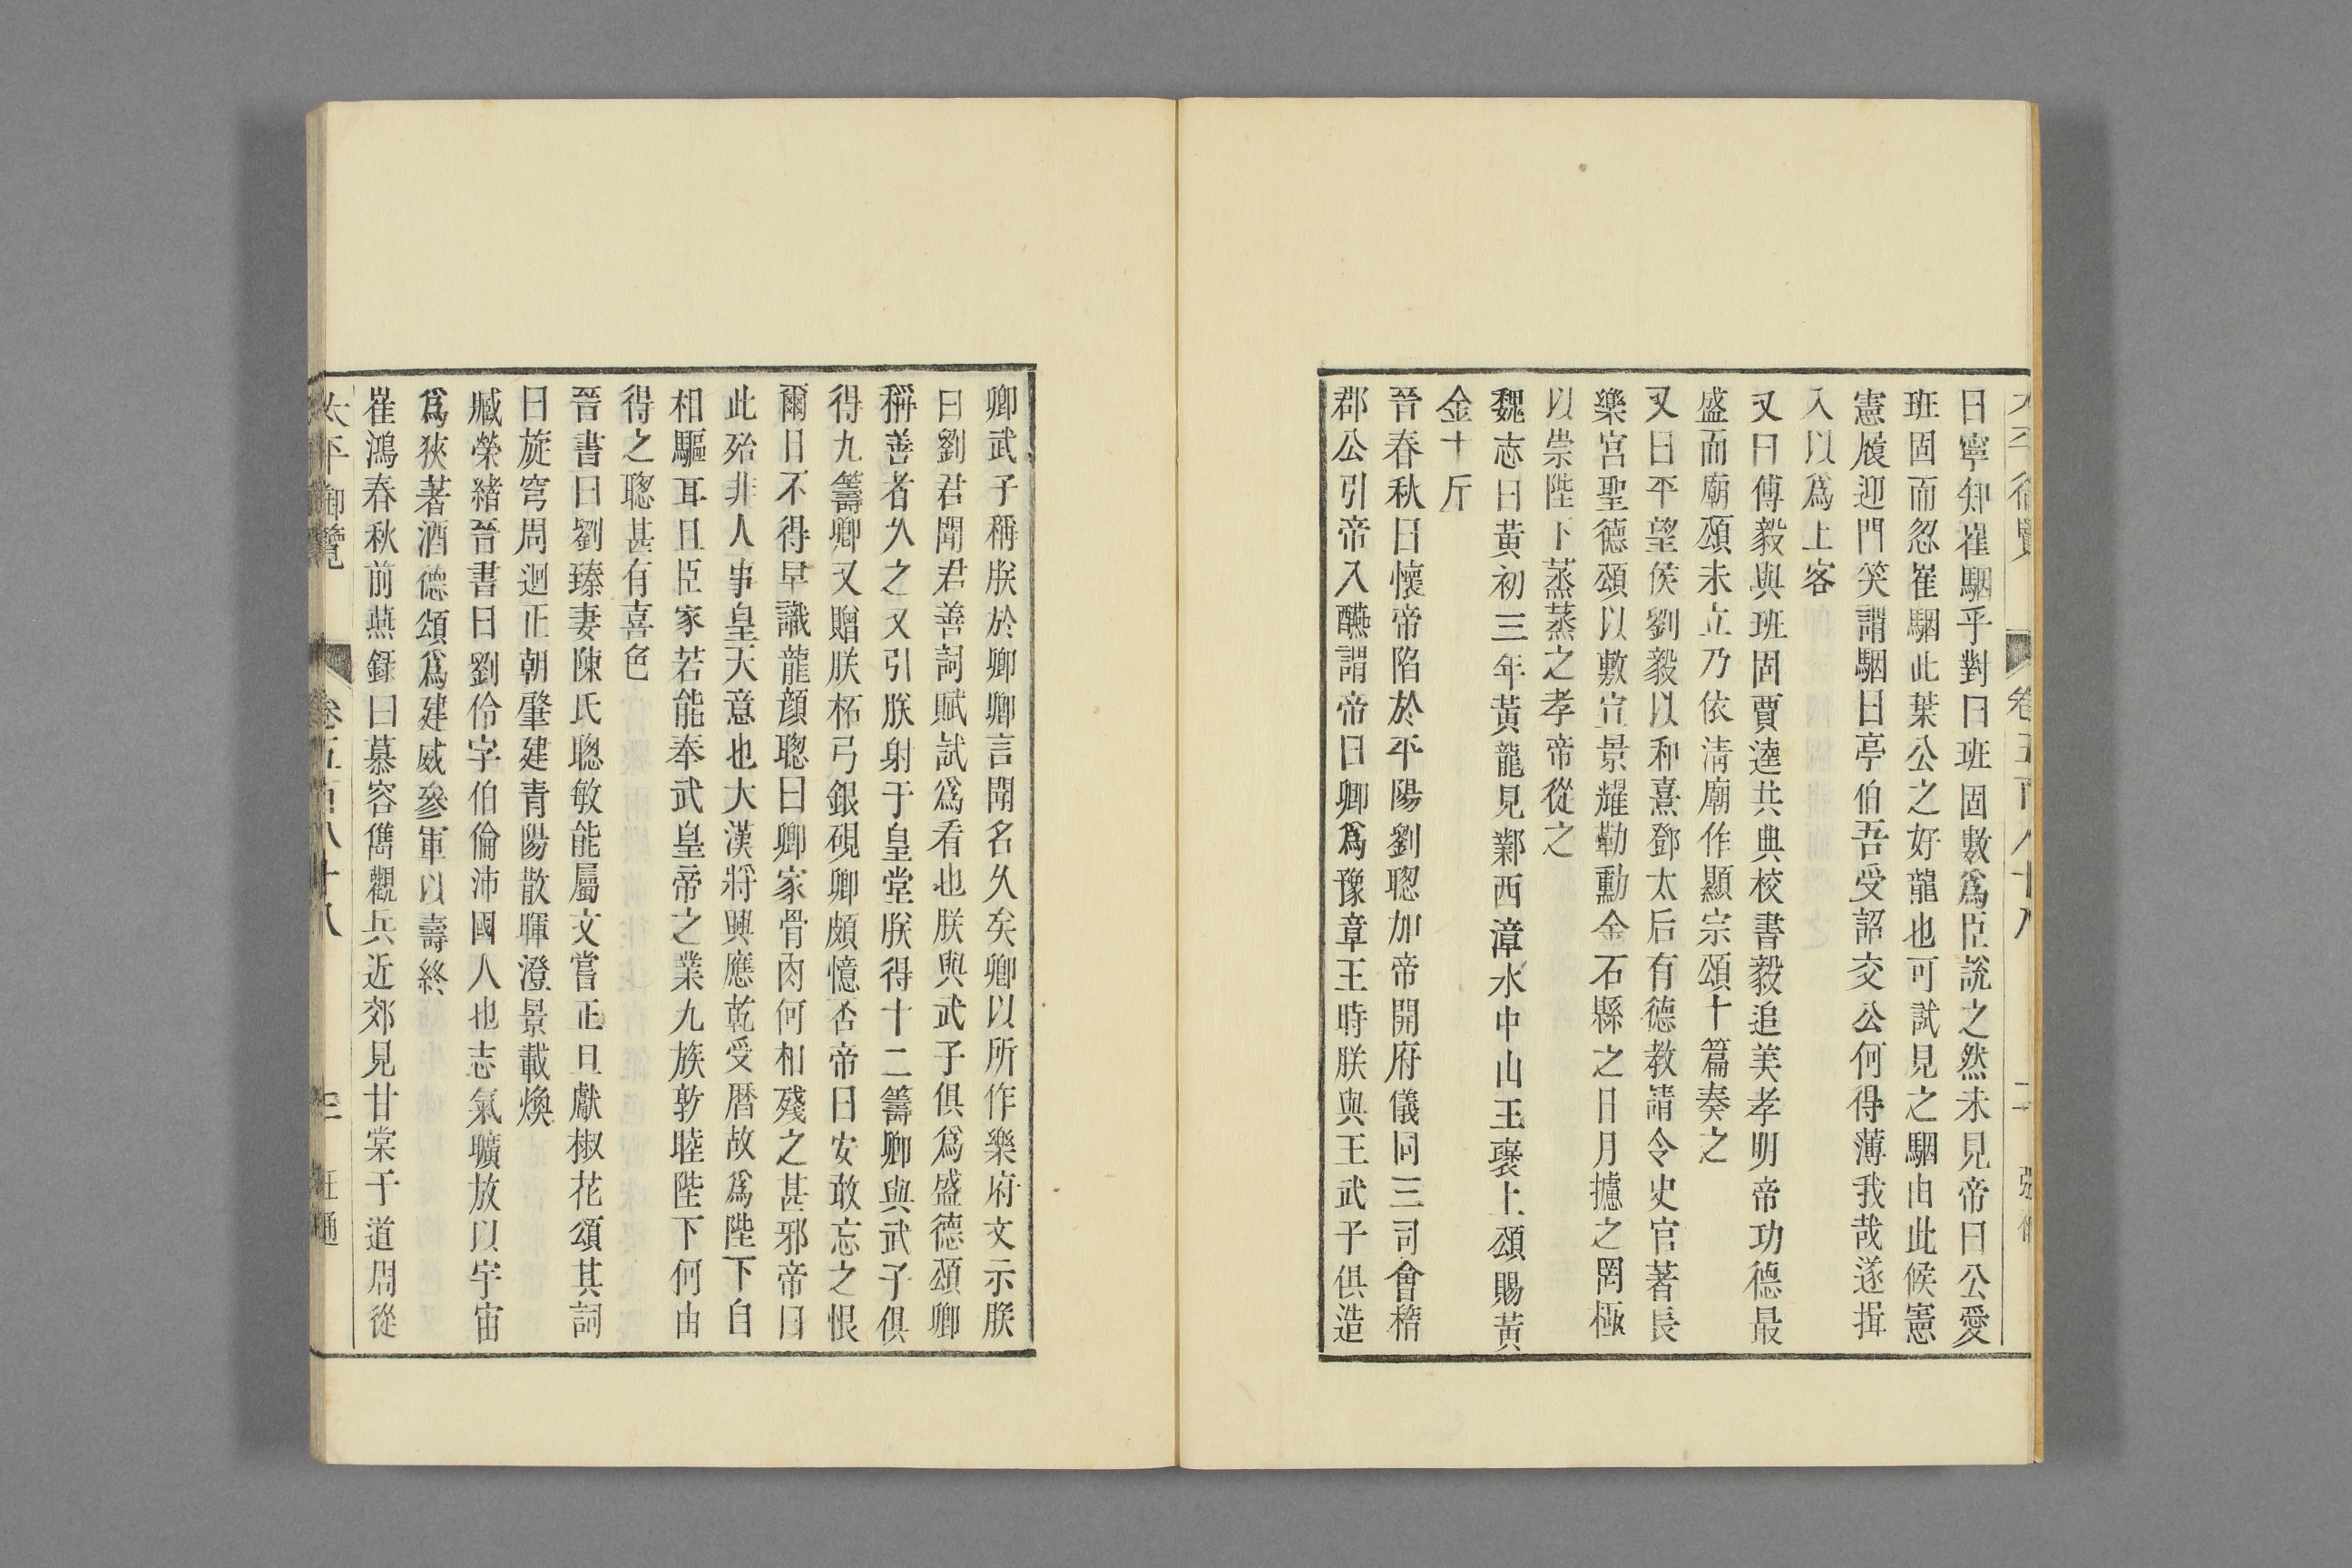 曰寧知崔駰乎對曰班固數爲臣說之然未見帝曰公愛
班固而忽崔駰此葉公之好龍也可試見之駰由此候憲
憲履迎門笑謂駰曰亭伯吾受詔交公何得薄我哉遂揖
入以爲上客
又曰傅毅與班固賈逵共典校書毅追美孝明帝功德最
盛而廟頌未立乃依淸廟作顯宗頌十篇奏之
又曰平望侯劉毅以和熹鄧太后有德教請令史官著長
樂宮聖德頌以敷宣景耀勒勳金石縣之日月攄之罔極
以崇陛下蒸蒸之孝帝從之
魏志曰黃初三年黃龍見鄴西漳水中山王袞上頌賜黃
金十斤
晉春秋曰懷帝陷於平陽劉聰加帝開府儀同三司會稽
郡公引帝入醼謂帝曰卿爲豫章王時朕與王武子俱造
卿武子稱朕於卿卿言聞名久矣卿以所作樂府文示朕
曰劉君聞君善詞賦試爲看也朕與武子俱爲盛德頌卿
稱善者久之又引朕射于皇堂朕得十二籌卿與武子俱
得九籌卿又贈朕柘弓銀硯卿頗憶否帝曰安敢忘之恨
爾日不得早識龍顔聰曰卿家骨肉何相殘之甚邪帝曰
此殆非人事皇天意也大漢將興應乾受曆故爲陛下自
相驅耳且臣家若能奉武皇帝之業九族敦睦陛下何由
得之聰甚有喜色
晉書曰劉臻妻陳氏聰敏能屬文嘗正旦獻椒花頌其詞
曰旋穹周迴正朝肇建青陽散暉澄景載煥
臧榮緒晉書曰劉伶字伯倫沛國人也志氣曠放以宇宙
爲狹著酒德頌爲建威參軍以壽終
崔鴻春秋前燕錄曰慕容儁觀兵近郊見甘棠于道周從
太平御覽 卷五百八十八 三